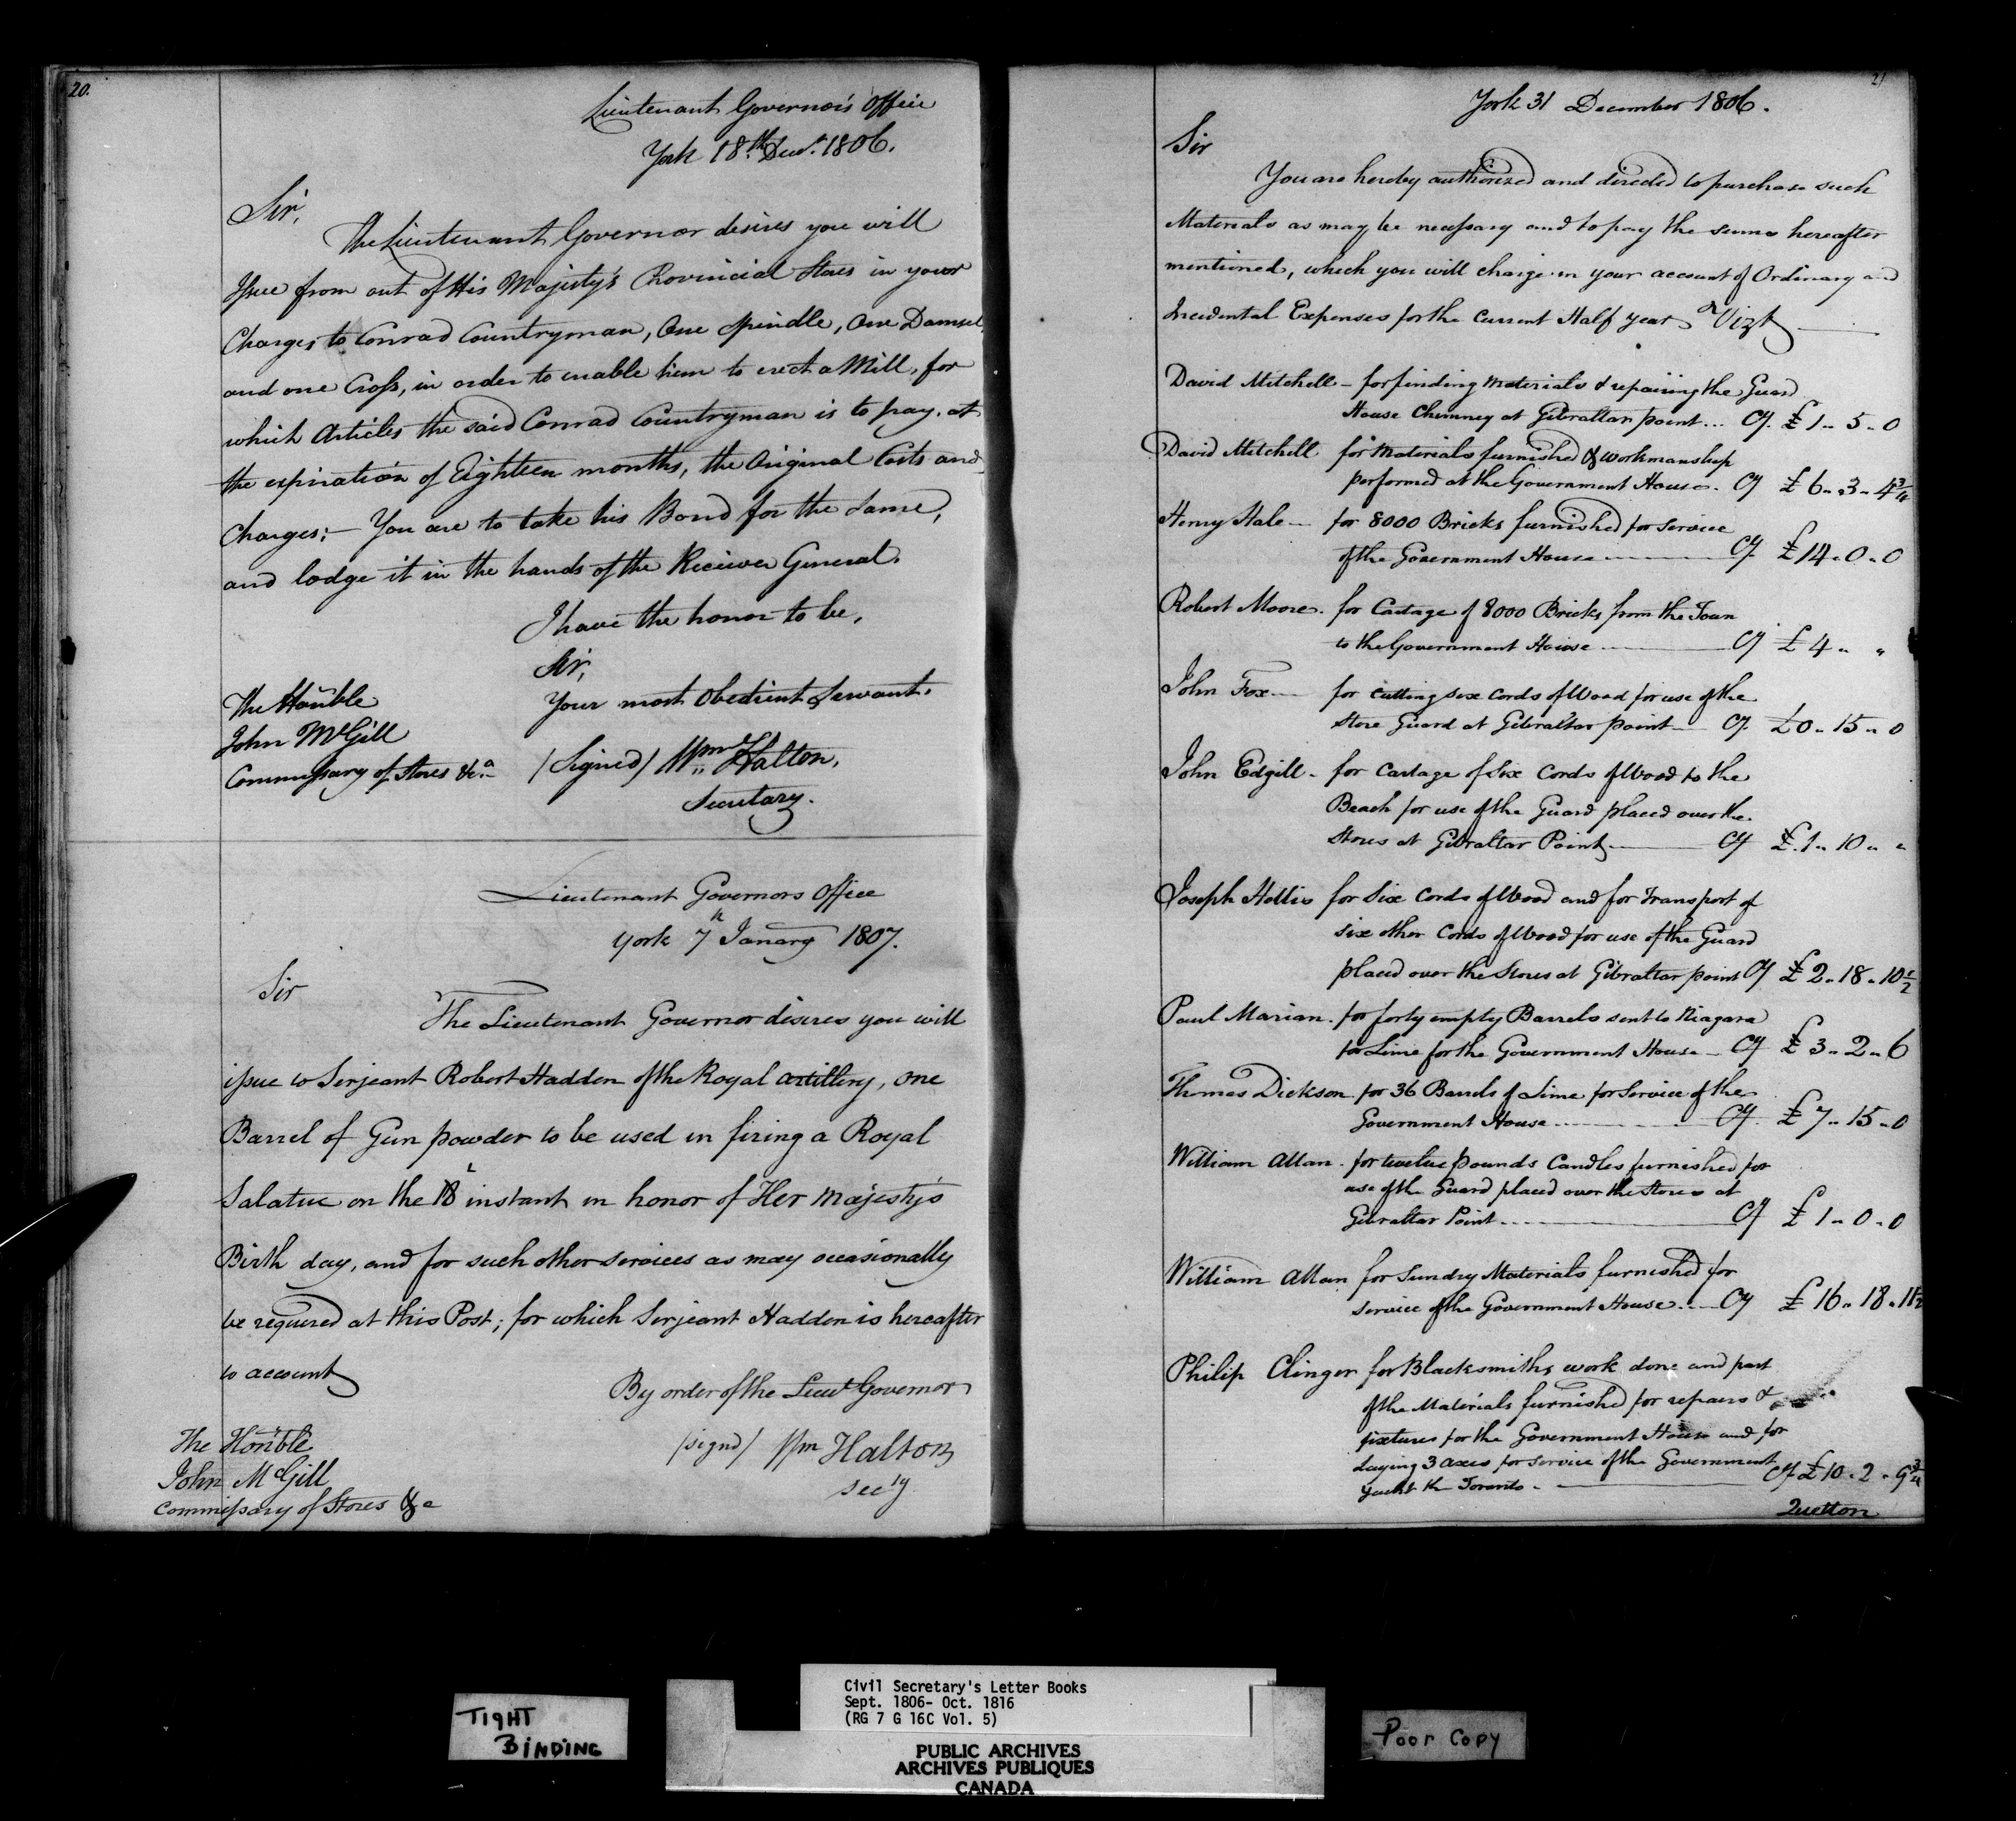 20.
Lieutenant Governor's Office
York 18.th Decr. 1806.
Sir,
The Lieutenant Governor desires you will
Issue from out of His Majesty's Provincial Stores in your
Charge, to Conrad Countryman, One Spindle, One Damsel,
and one Cross, in order to enable him to erect a Mill, for
which Articles the said Conrad Countryman is to pay, at
the expiration of Eighteen months, the Original Costs and
Charges:- You are to take his Bond for the Same,
and lodge it in the hands of the Receiver General.
I have the honor to be,
Sir,
Your most Obedient Servant.
The Honble
John McGill
Commissary of Stores &c.a
(Signed) Wm Halton,
Secretary.
Lieutenant Governors Office
York 7th January 1807.
Sir
The Lieutenant Governor desires you will
issue to Serjeant Robert Hadden of the Royal artillery, one
Barrel of Gun powder to be used in firing a Royal
Salatue on the 18 instant in honor of Her Majesty's
Birth day, and for such other services as may occasionally
be required at this Post; for which Serjeant Hadden is hereafter
to account
By order of the Lieut Governor
(signd) Wm Halton
Sec'y
The Honble
John McGill
Commissary of Stores &c
21
York 31 December 1806.
Sir
You are hereby authorized and directed to purchase such
Materials as may be necessary and to pay the sums hereafter
mentioned, which you will charge in your account of Ordinary and
Incidental Expenses for the Current Half year Vizt
David Mitchell - for finding materials & repairing the Guard
House Chimney at Gibraltar point ... Cy. £1 .. 5 .. 0
David Mitchell for Materials furnished & workmanship
performed at the Government House. Cy £6 .. 3 .. 4 3/4
Henry Hale - for 8000 Bricks furnished for service
of the Government House Cy. £14 . 0 . 0
Robert Moore. for Cartage of 8000 Bricks from the Town
to the Government House Cy £4 " "
John Fox - for cutting six Cords of Wood for use of the
Store Guard at Gibraltar point - Cy. £0 .. 15 .. 0
John Edgill - for Cartage of Six Cords of Wood to the
Beach for use of the Guard placed over the
Stores at Gibraltar Point Cy £.1 .. 10 " "
Joseph Hollis for Six Cords of Wood and for Transport of
six other Cords of Wood for use of the Guard
placed over the Stores at Gibraltar point Cy £2 .. 18 .. 10 1/2
Paul Marian. for forty empty Barrels sent to Niagara
for Lime for the Government House - Cy £3 .. 2 .. 6
Thomas Dickson for 36 Barrels of Lime for Service of the
Government House Cy. £7 .. 15 .. 0
William Allan. for twelve pounds Candles furnished for
use of the Guard placed over the Stores at
Gibraltar Point Cy £1 .. 0 .. 0
William Allan for Sundry Materials furnished for
service of the Government House Cy £16 .. 18 .. 11 1/2
Philip Clinger for Blacksmiths work done and part
of the Materials furnished for repairs &
fixtures for the Government House and for
laying 3 axes for service of the Government
Yacht the Toronto. Cy £10 . 2 . 9 3/4
Quetton
TIGHT
BINDING
Civil Secretary's Letter Books
Sept. 1806- Oct. 1816
(RG 7 G 16C Vol. 5)
PUBLIC ARCHIVES
ARCHIVES PUBLIQUES
CANADA
Poor Copy